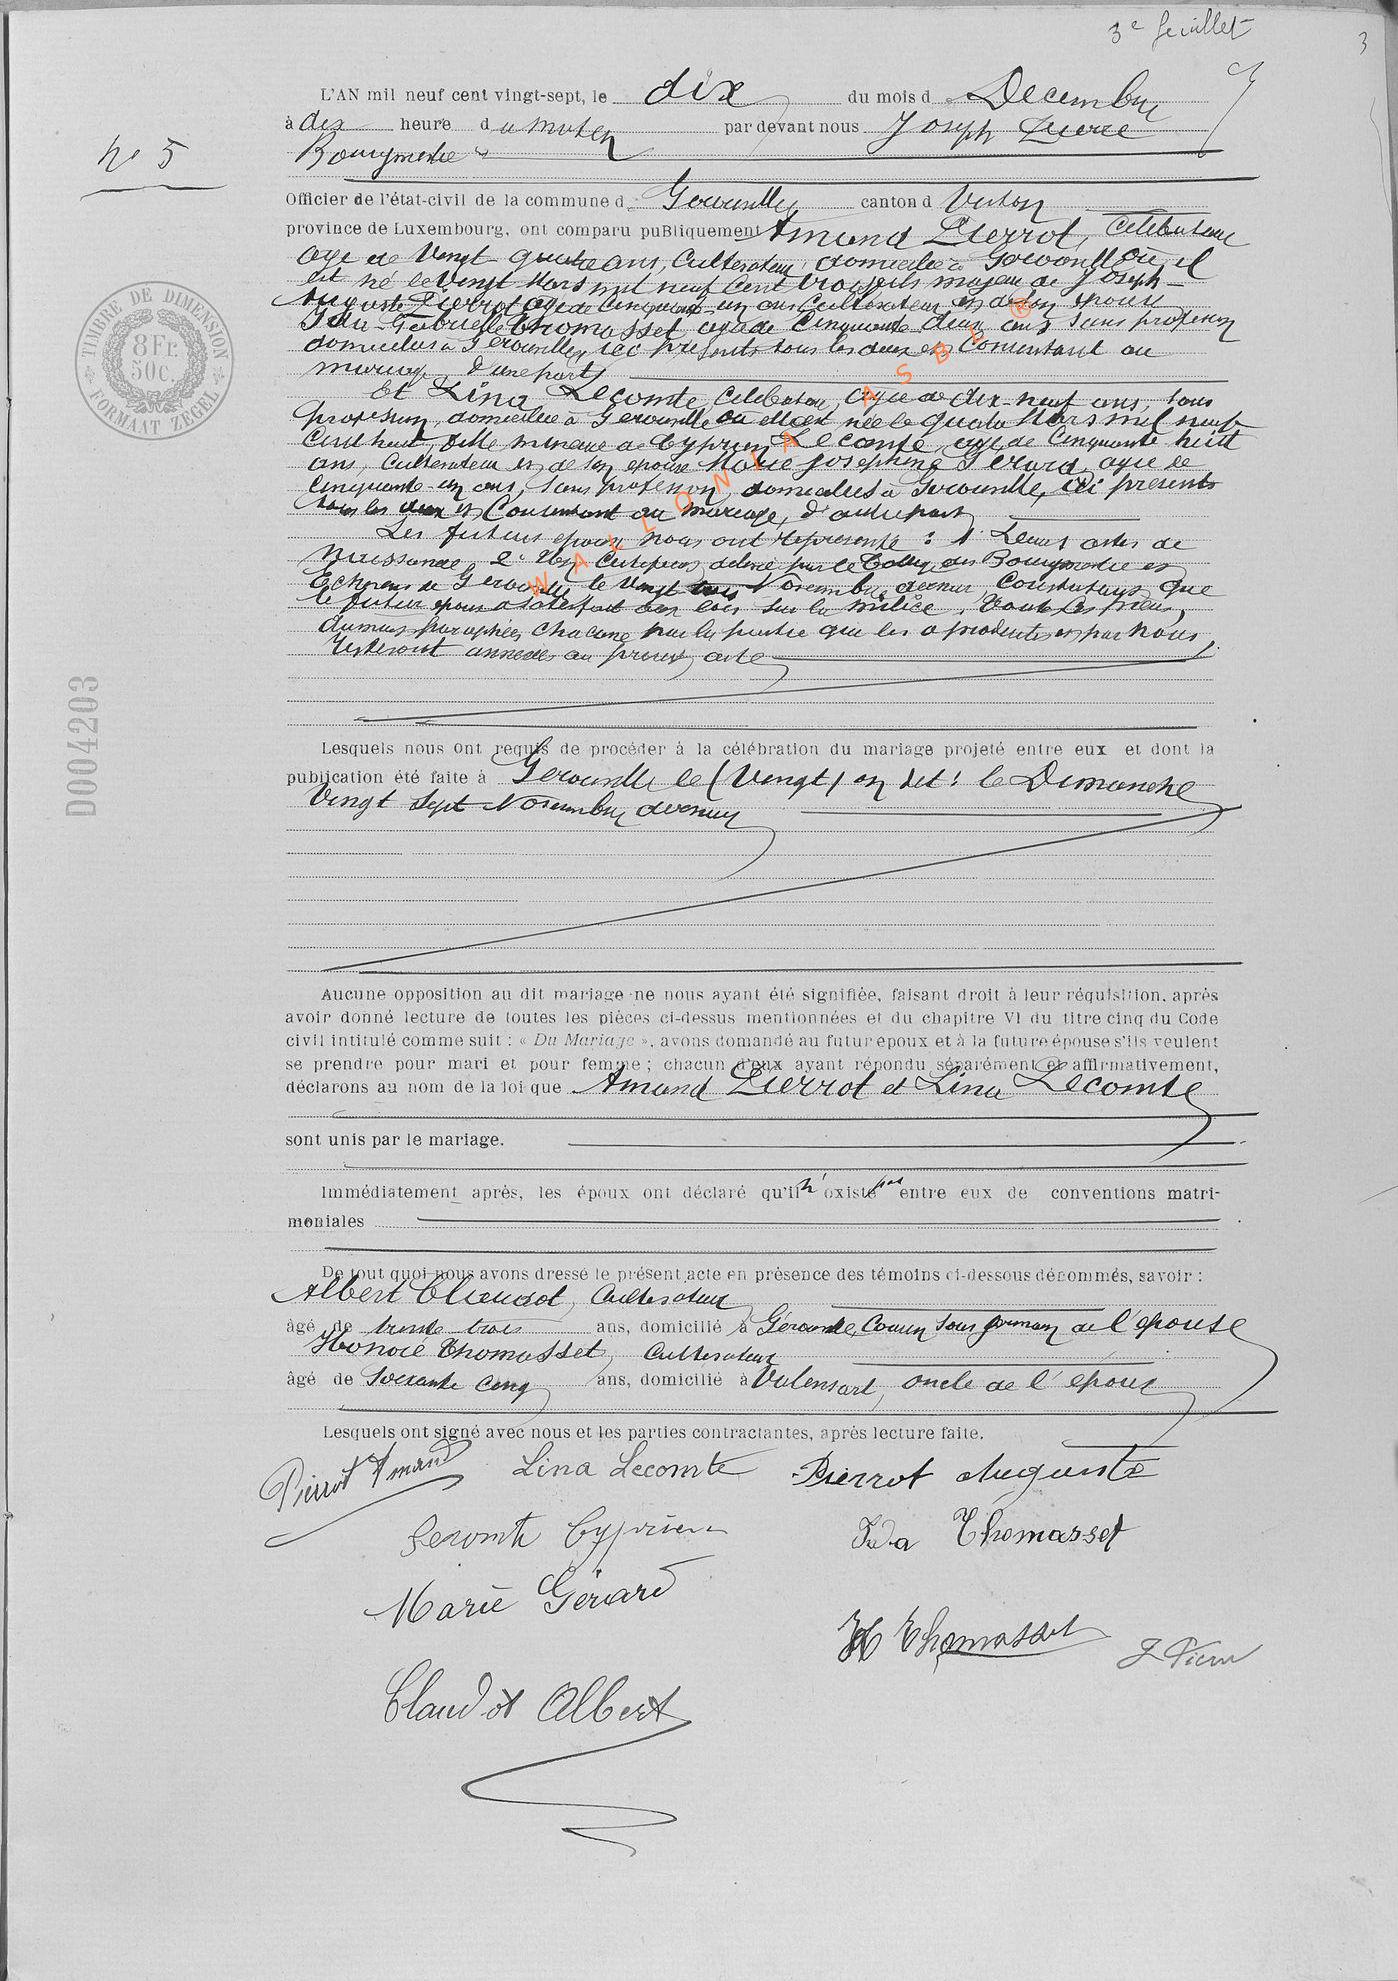 3e feuillet
3
L'AN mil neuf cent vingt-sept, le dix du mois d Decembre
à dix heure du matin par devant nous Joseph Pierre
Bourgmestre
No 5
Officier de l'état-civil de la commune d Gerouville canton d Virton
province de Luxembourg, ont comparu puBliquement Amand Pierrot, Celibataire
age de Vingt quatre ans, Cultivateur domicilié à Gerouville où il
est né le Vingt Mars mil neuf Cent trois, fils majeur de Joseph
Auguste Pierrot age de Cinquante un ans Cultivateur et de son epouse
Ida Gabrielle Thomasset agee de Cinquante deux ans Sans profession
domicilies à Gerouville, ici présents tous les deux et Consentant au
mariage, d'une part
Et Lina Lecomte, Celibataire, agée de dix-neuf ans, sans
profession, domiciliee à Gerouville où elle est née le quatre Mars mil neuf
Cent huit, fille mineure de Cyprien Lecomte, age de Cinquante huit
ans, Cultivateur et de son epouse Marie Josephine Gerard, agee de
Cinquante un ans, Sans profession, domicilies à Gerouville, ici présents
tous les deux et Consentant au mariage, d'autre part
Les futurs epoux nous ont représenté : 1° Leurs actes de
naissance, 2° Un Certificat délivré par le College des Bourgmestre et
Echevins de Gerouville le Vingt trois Novembre dernier Constatant que
le futur epoux a satisfait aux lois sur la milice. Toutes les pieces
dument paraphées, chacune par la partie qui les a produites et par nous
resteront annexées au present acte
TIMBRE DE DIMENSION
8Fr.
50c.
FORMAAT ZEGEL
WALLONIA ASBL ®
D004203
Lesquels nous ont requis de procéder à la célébration du mariage projeté entre eux et dont la
publication été faite à Gerouville le (Vingt) on dit : le Dimanche
Vingt Sept Novembre dernier
Aucune opposition au dit mariage ne nous ayant été signifiée, faisant droit à leur réquisition, après
avoir donné lecture de toutes les pièces ci-dessus mentionnées et du chapitre VI du titre cinq du Code
civil intitulé comme suit : « Du Mariage », avons domandé au futur époux et à la future épouse s'ils veulent
se prendre pour mari et pour femme ; chacun d'eux ayant répondu séparément et affirmativement,
déclarons au nom de la loi que Amand Pierrot et Lina Lecomte
sont unis par le mariage.
Immédiatement après, les époux ont déclaré qu'il n'existe pas entre eux de conventions matri-
moniales
De tout quoi nous avons dressé le présent acte en présence des témoins ci-dessous dénommés, savoir :
Albert Claudot, Cultivateur
âgé de trente trois ans, domicilié à Gérouville, Cousin Sous germain de l'epouse
Honoré Thomasset, Cultivateur
âgé de Soixante Cinq ans, domicilié à Valensart, oncle de l'époux
Lesquels ont signé avec nous et les parties contractantes, après lecture faite.
Pierrot Amand Lina Lecomte Pierrot Auguste
Lecomte Cyprien Ida Thomasset
Marie Gérard
H Thomasset J Pierre
Claudot Albert